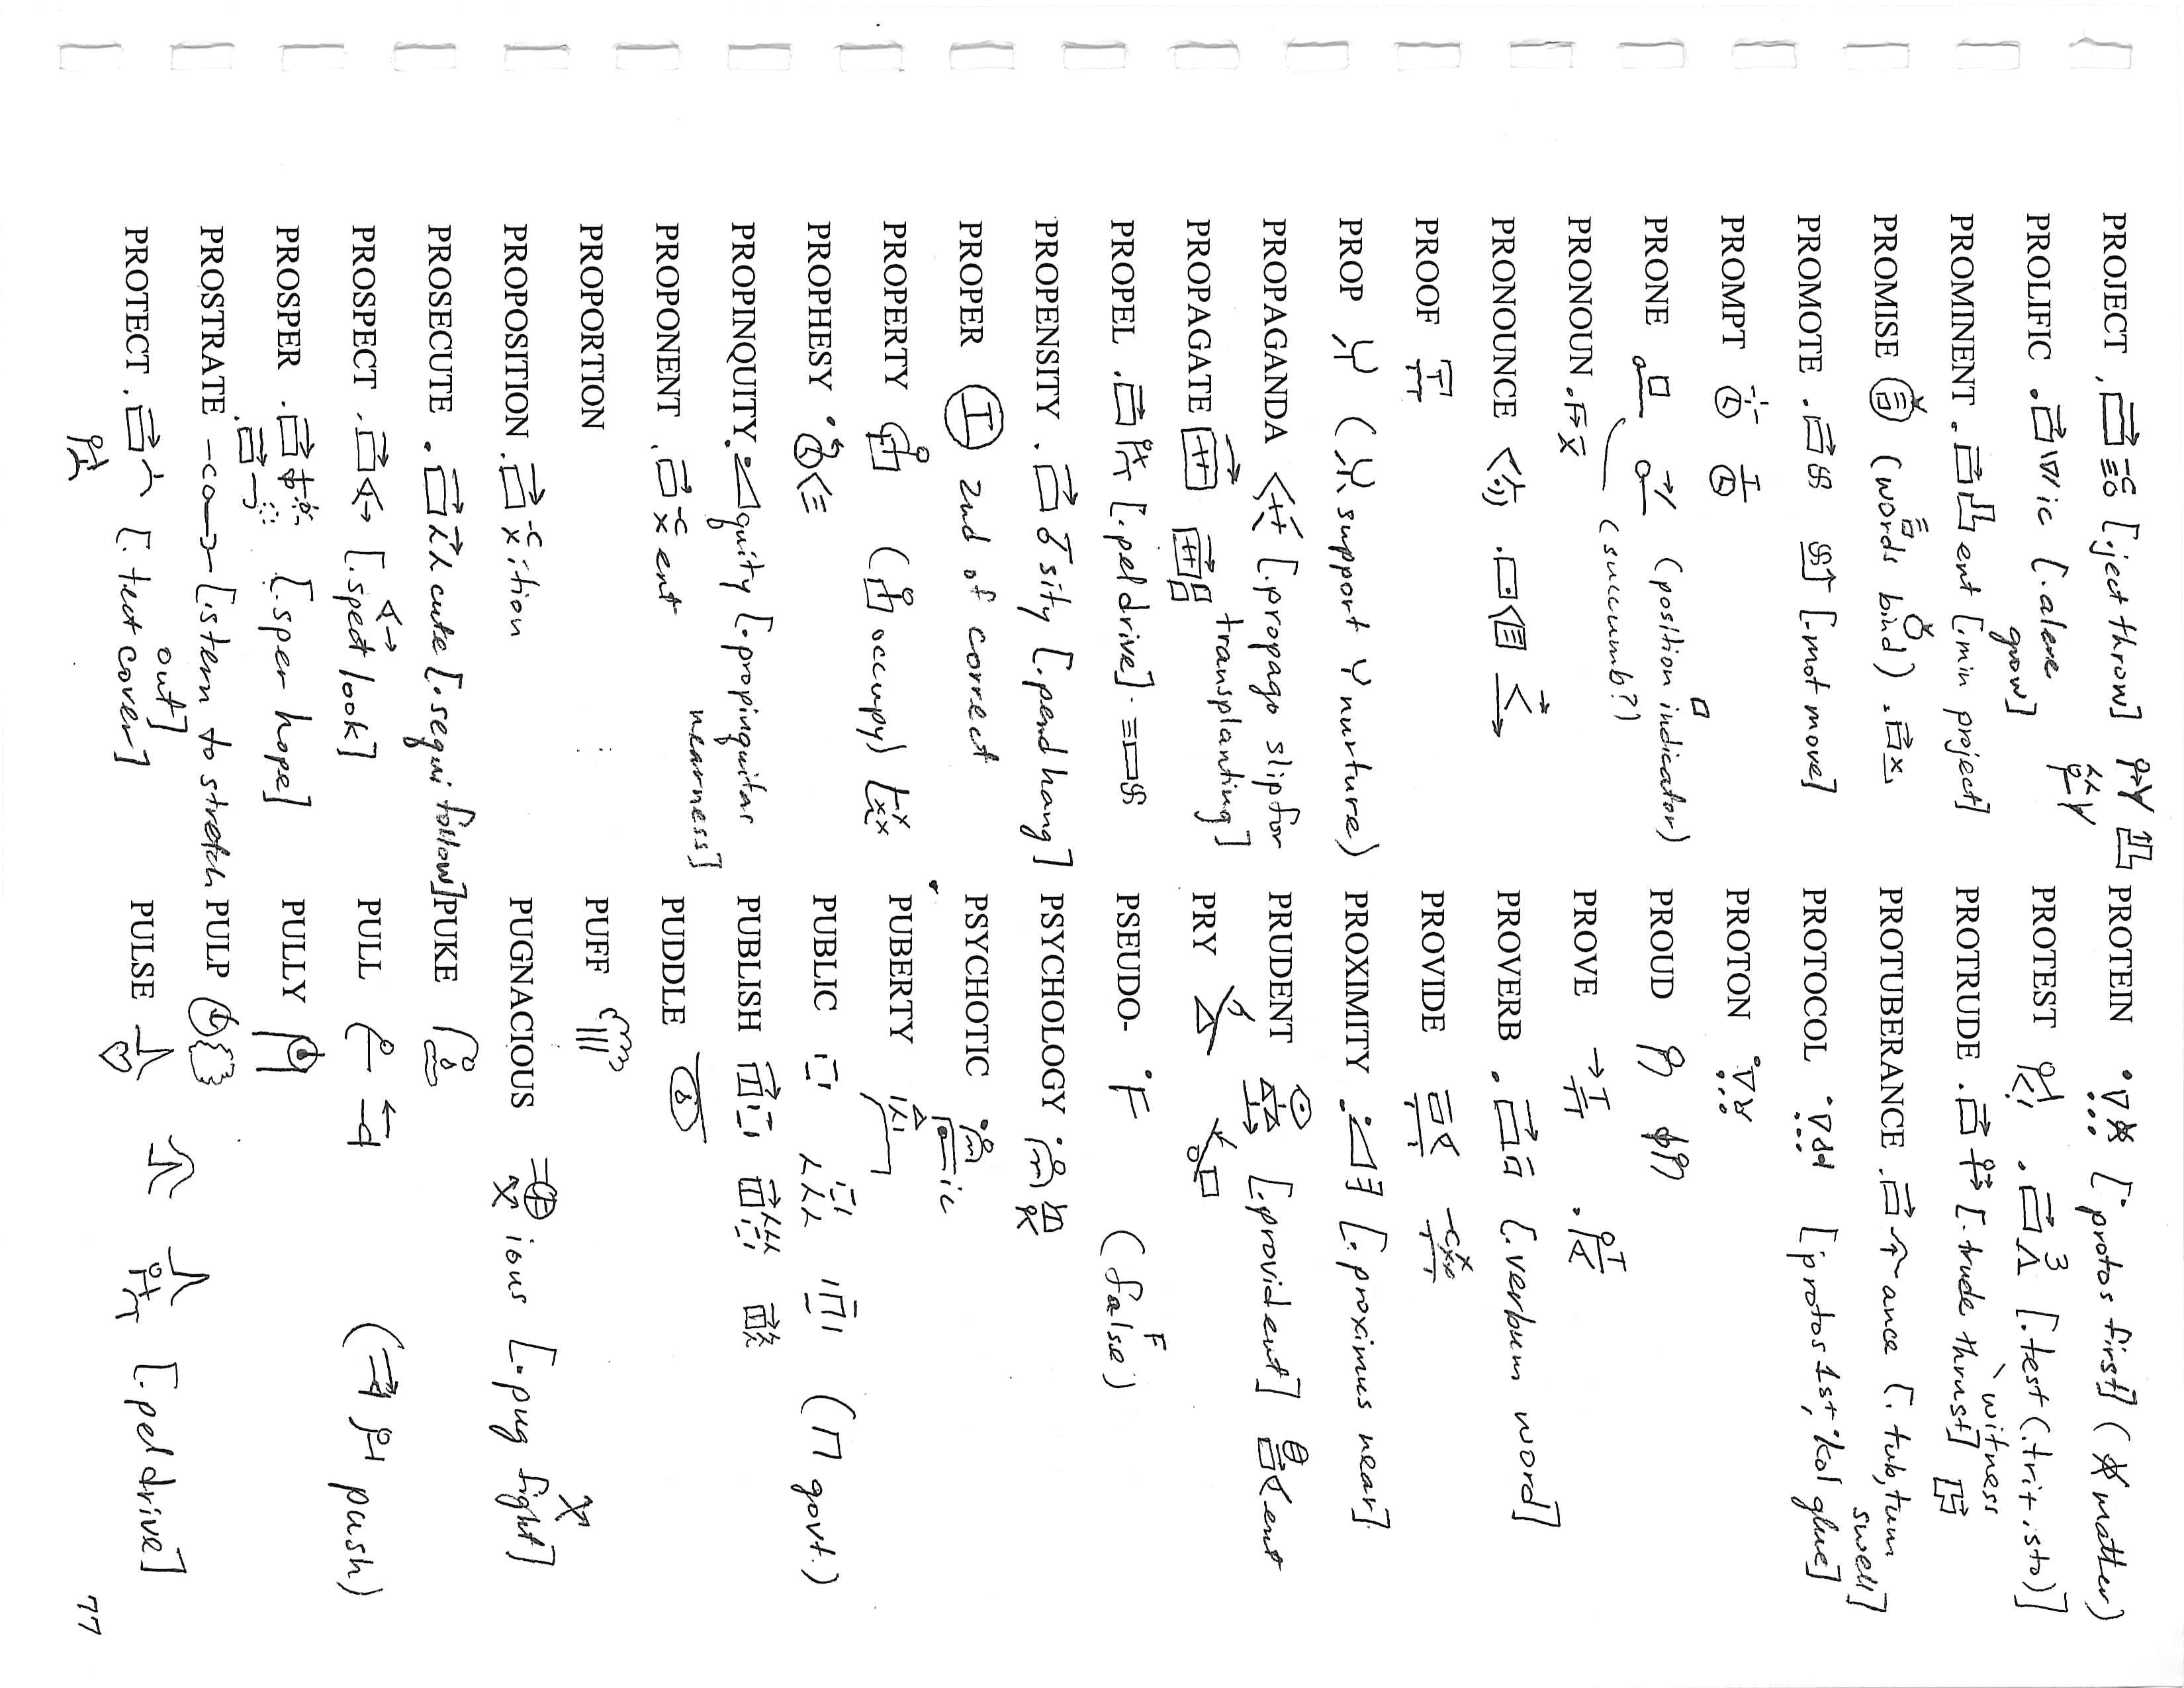 PROJECT [.ject throw]
PROLIFIC ic [.alere grow]
PROMINENT ent [.min project]
PROMISE (words bind)
PROMOTE [.mot move]
PROMPT
PRONE (position indicator)
(succumb?)
PRONOUN
PRONOUNCE
PROOF
PROP (support nurture)
PROPAGANDA [.propago slip for
PROPAGATE transplanting]
PROPEL [.pel drive]
PROPENSITY sity [.pend hang]
PROPER T 2nd of correct
PROPERTY (occupy)
PROPHESY
PROPINQUITY quity [.propinquitas
nearness]
PROPONENT ent
PROPORTION
PROPOSITION ition
PROSECUTE cute [.sequi follow]
PROSPECT [.spect look]
PROSPER [.sper hope]
PROSTRATE [.stern to stretch
out]
PROTECT [.tect cover]
PROTEIN [.protos first] (matter)
PROTEST 3 [.test (.tri+.sto)]
witness
PROTRUDE [.trude thrust]
PROTUBERANCE ance [.tub, tum
swell]
PROTOCOL [protos 1st, kol glue]
PROTON
PROUD
PROVE
PROVERB [.verbum word]
PROVIDE
PROXIMITY [.proximus near]
PRUDENT [.provident] ent
PRY
PSEUDO- F (false)
F
PSYCHOLOGY
PSYCHOTIC ic
PUBERTY
PUBLIC (govt.)
PUBLISH
PUDDLE
PUFF
PUGNACIOUS ious [.pug fight]
PUKE
PULL (push)
PULLY
PULP
PULSE [.pel drive]
77